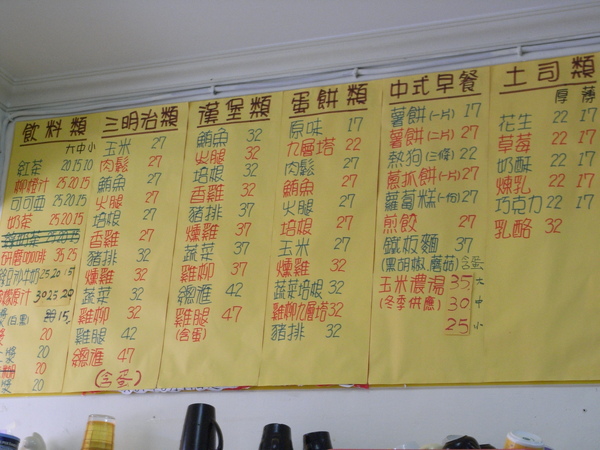 飲料類
大中小
紅茶 20 15 10
柳橙汁 25 20 15
可可亞 25 20 15
奶茶 25 20 15
研磨咖啡 35 25
30 25 20
15
20
20
20
20
三明治類
玉米 27
肉鬆 27
鮪魚 27
火腿 27
培根 27
香雞 27
豬排 32
燻雞 32
蔬菜 32
雞柳 32
雞腿 42
總滙 47
(含蛋)
漢堡類
鮪魚 32
火腿 32
培根 32
香雞 32
豬排 37
燻雞 37
蔬菜 37
雞柳 37
總滙 42
雞腿 47
(含蛋)
蛋餅類
原味 17
九層塔 22
肉鬆 27
鮪魚 27
火腿 27
培根 27
玉米 27
燻雞 32
蔬菜培根 32
雞柳九層塔 32
豬排 32
中式早餐
薯餅(一片) 17
薯餅(二片) 27
熱狗(三條) 22
蔥抓餅(一片) 27
蘿蔔糕(一份) 27
煎餃 27
鐵板麵 37
(黑胡椒.蘑菇)含蛋
玉米濃湯 35 大
(冬季供應) 30 中
25 小
土司類
厚 薄
花生 22 17
草莓 22 17
奶酥 22 17
煉乳 22 17
巧克力 22 17
乳酪 32